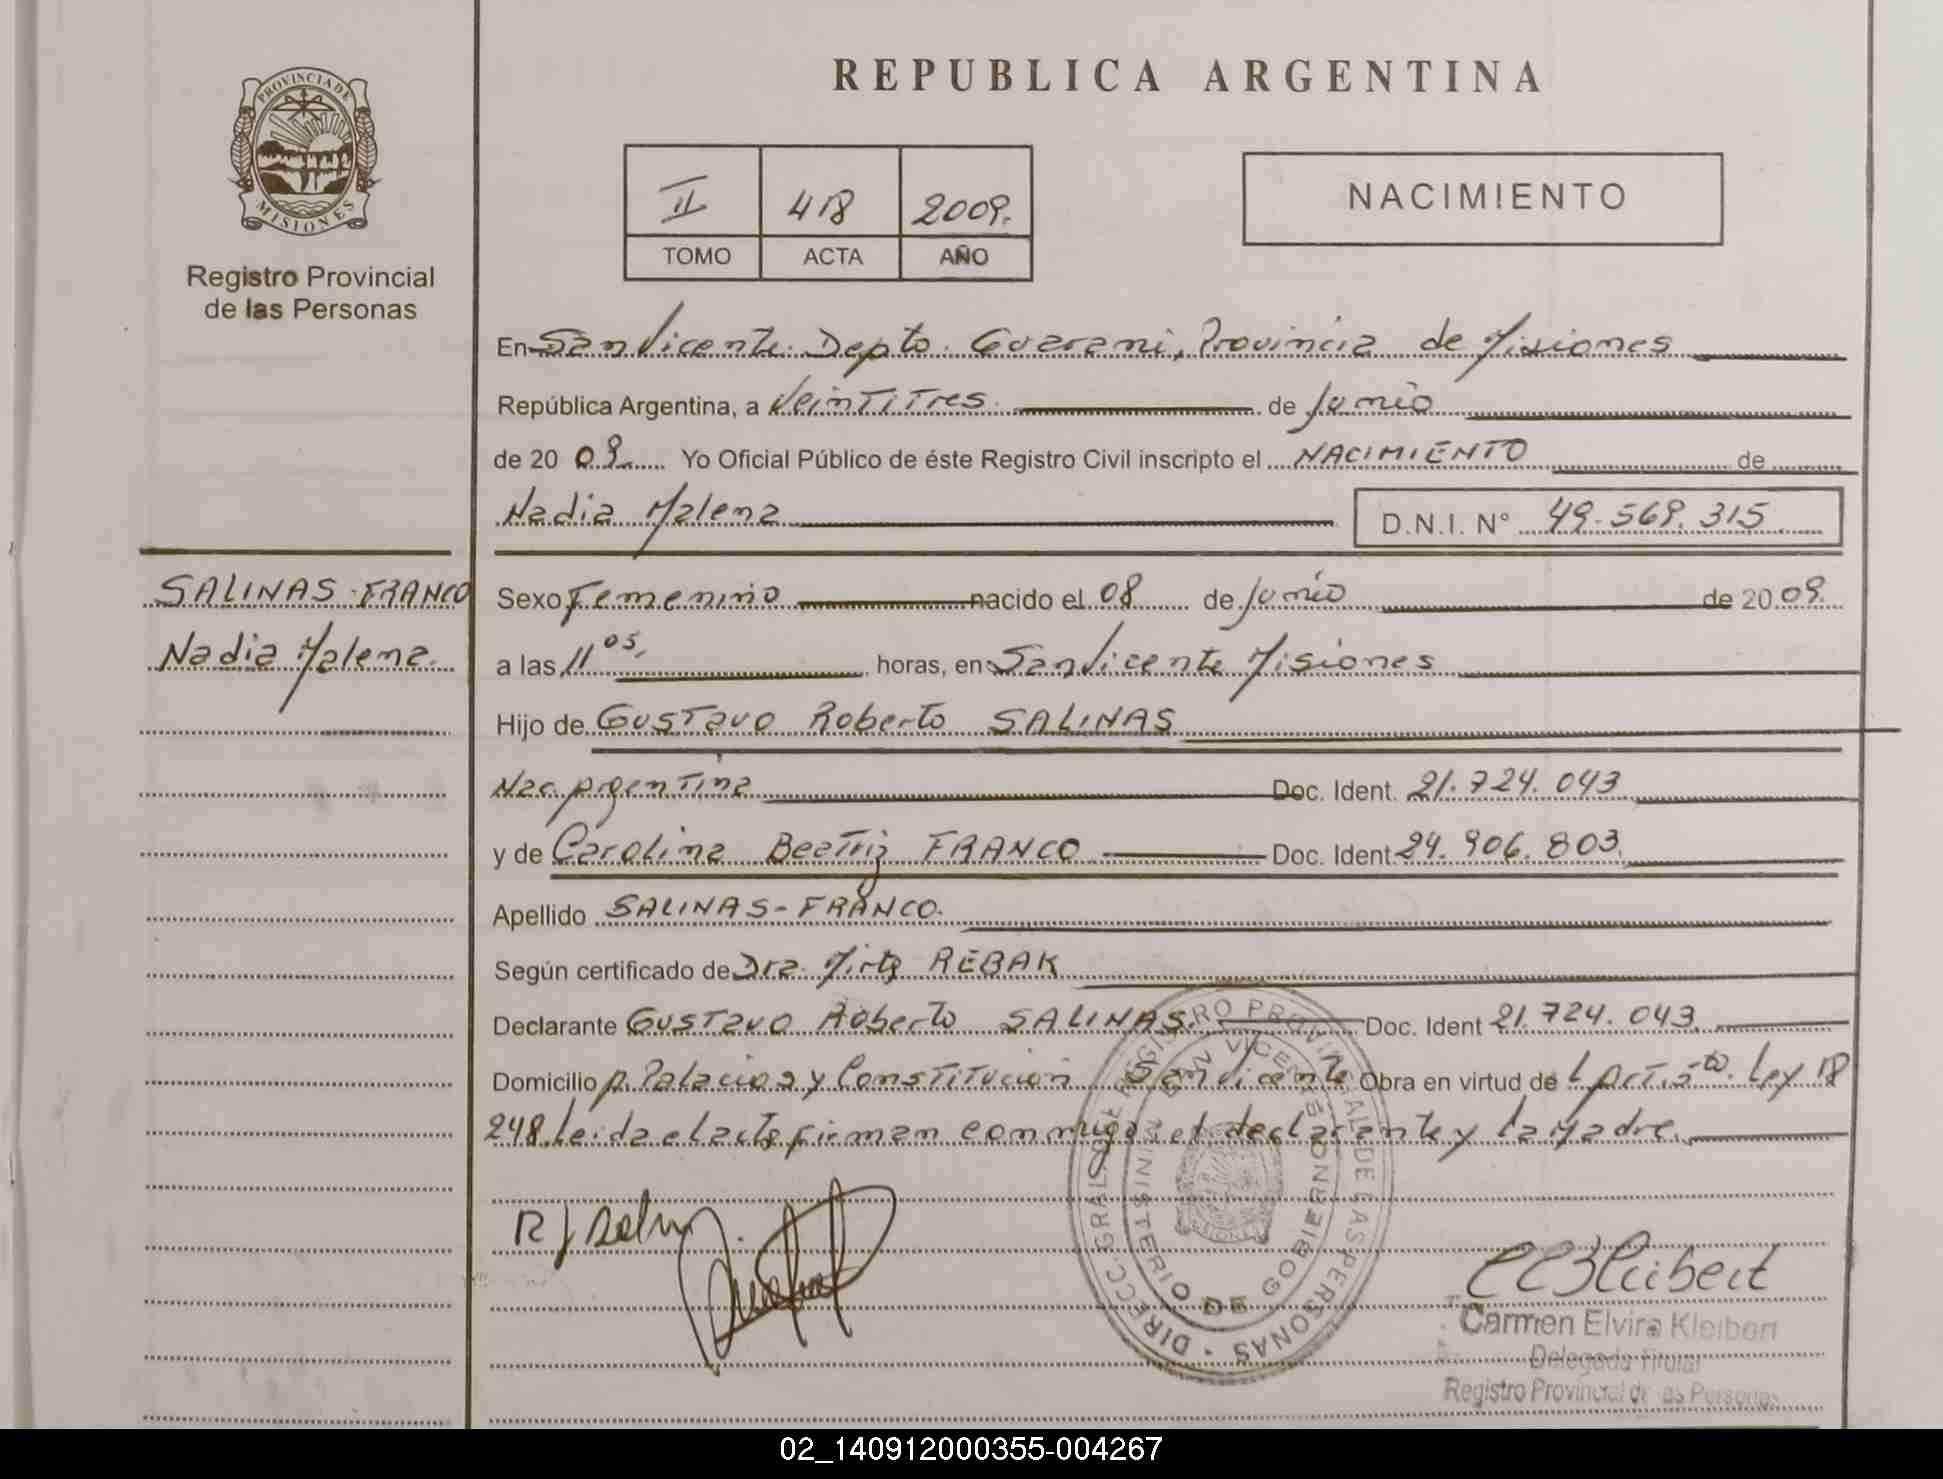 REPUBLICA ARGENTINA
PROVINCIA DE MISIONES
Registro Provincial
de las Personas
II 418 2009.
TOMO ACTA AÑO
NACIMIENTO
En San Vicente. Depto. Guarani, Provincia de Misiones
República Argentina, a Veintitres. de Junio
de 20 09. Yo Oficial Público de éste Registro Civil inscripto el NACIMIENTO de
Nadia Malena
D.N.I. N° 49.569.315
SALINAS-FRANCO
Nadia Malena.
Sexo Femenino nacido el 08 de Junio de 20 09.
a las 11 05, horas, en San Vicente Misiones
Hijo de Gustavo Roberto SALINAS
Nac. Argentina Doc. Ident. 21.724.043
y de Carolina Beatriz FRANCO Doc. Ident. 24.906.803.
Apellido SALINAS-FRANCO.
Según certificado de Dra. Mirta REBAK
Declarante Gustavo Roberto SALINAS. Doc. Ident 21.724.043.
Domicilio A. Palacios y Constitucion San Vicente Obra en virtud de Ley 18
248. Leida el acta firman conmigo el declarante y la Madre.
DIRECC. GRAL. DEL REGISTRO PROVINCIAL DE LAS PERSONAS
SAN VICENTE
MINISTERIO DE GOBIERNO
MISIONES
Carmen Elvira Kleibert
Delegada Titular
Registro Provincial de las Personas
02_140912000355-004267